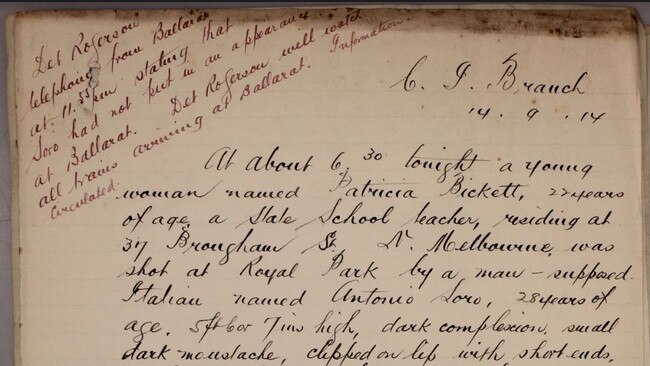 Det Rogerson
telephoned from Ballarat
at 11.55 pm stating that
Soro had not put in an appearance
at Ballarat. Det Rogerson will watch
all trains arriving at Ballarat. Information
circulated.
C. I. Branch
14. 9. 14
At about 6.30 tonight a young
woman named Patricia Bickett, 22 years
of age, a State School teacher, residing at
37 Brougham St. N. Melbourne, was
shot at Royal Park by a man - supposed
Italian named Antonio Soro, 28 years of
age, 5ft 6 or 7 ins high, dark complexion, small
dark moustache, clipped on lip with short ends,